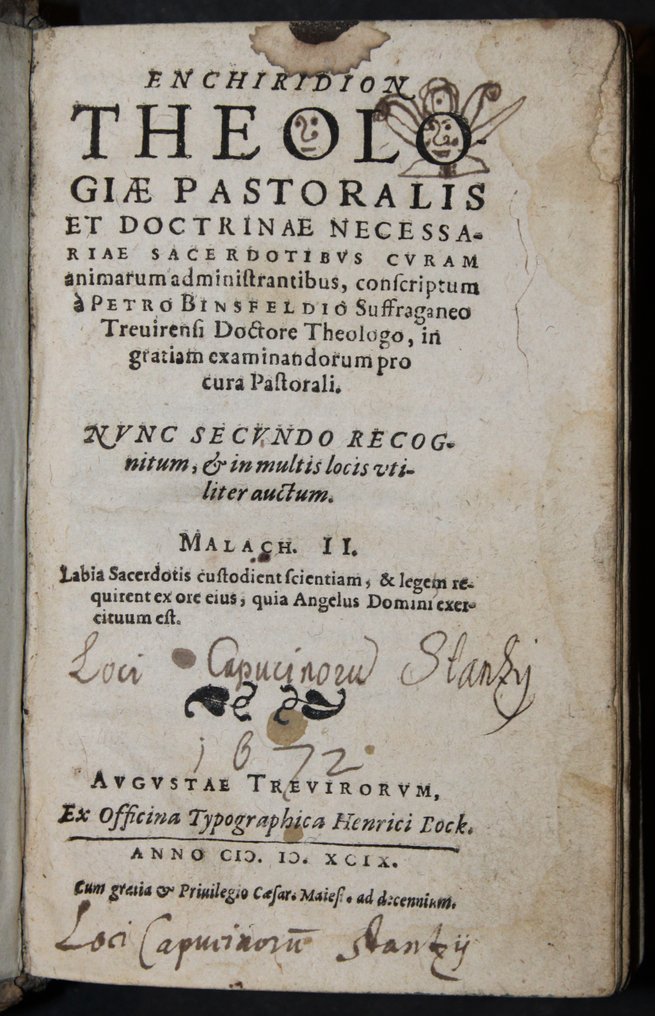 ENCHIRIDION
THEOLO-
GIÆ PASTORALIS
ET DOCTRINAE NECESSA-
RIAE SACERDOTIBVS CVRAM
animarum adminiſtrantibus, conſcriptum
à PETRO BINSFELDIO Suffraganeo
Treuirenſi Doctore Theologo, in
gratiam examinandorum pro
cura Paſtorali.
NVNC SECVNDO RECOG-
nitum, & in multis locis vti-
liter auctum.
MALACH. II.
Labia Sacerdotis cuſtodient ſcientiam, & legem re-
quirent ex ore eius, quia Angelus Domini exer-
cituum eſt.
Loci Capucinorū Stantzij
1672
AVGVSTAE TREVIRORVM,
Ex Officina Typographica Henrici Bock.
ANNO CIƆ. IƆ. XCIX.
Cum gratia & Priuilegio Cæſar. Maieſt. ad decennium.
Loci Capucinorū Stantzij